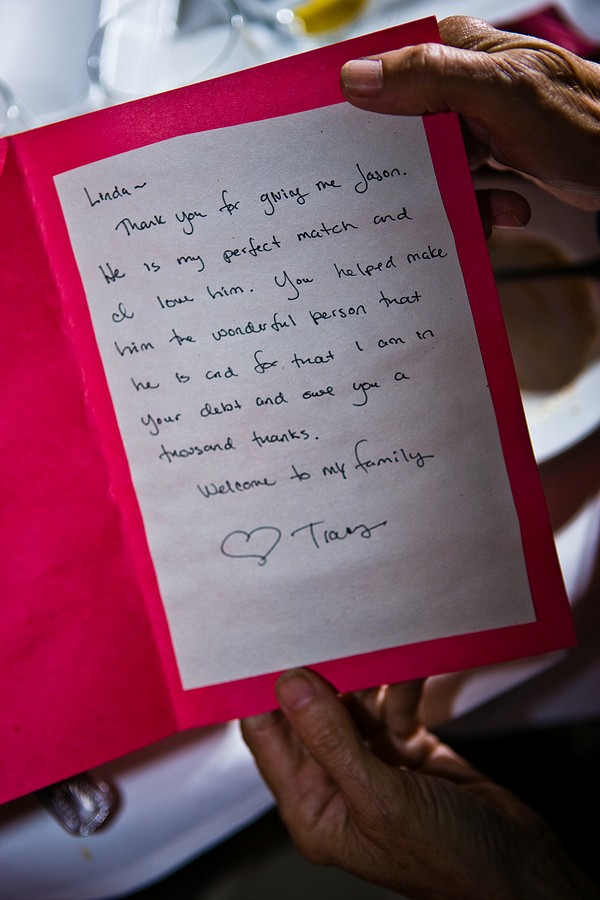 Linda~
Thank you for giving me Jason.
He is my perfect match and
I love him. You helped make
him the wonderful person that
he is and for that I am in
your debt and owe you a
thousand thanks.
Welcome to my family
♡ Tracy